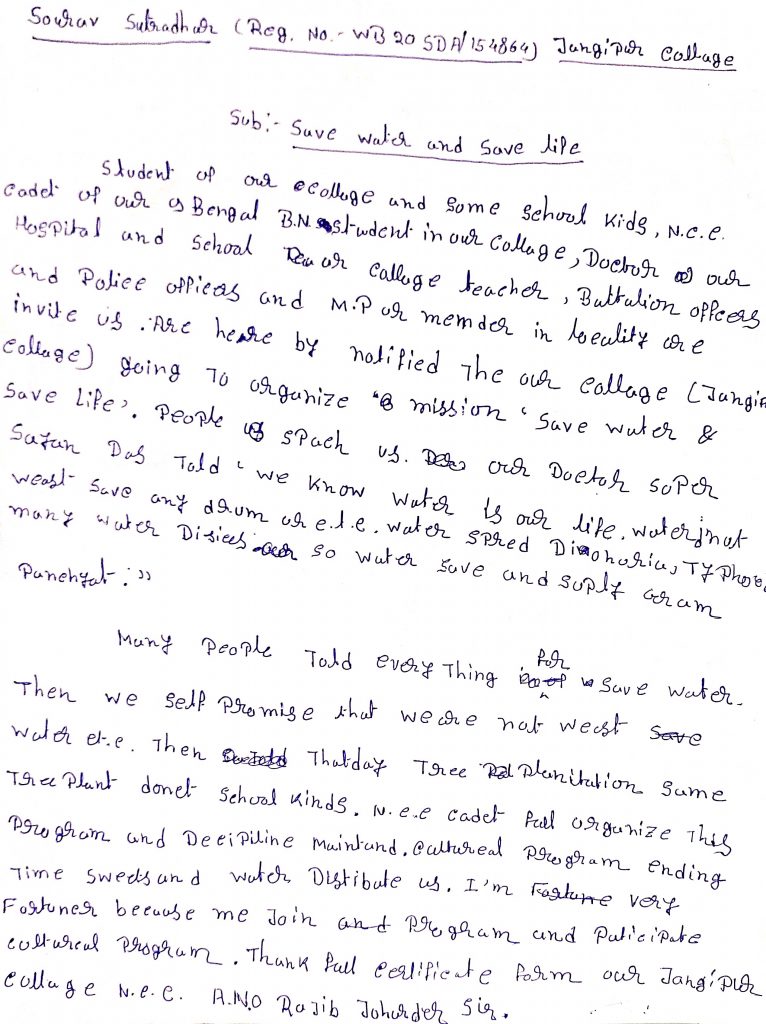 Sourav Sutradhar (Reg. No.- WB 20 SDA/154864) Jangipur Collage
Sub:- Save water and save life
Student of our collage and some school kids, N.C.C.
cadet of our Bengal B.N. student in our collage, Doctor our
Hospital and school or collage teacher, Battalion offcers
and Police officers and M.P or memder in locality are
invite us. Are here by notified The our collage (Jangi
collage) going To organize mission 'Save water &
Save life'. People spach us. our Doctor soper
Sajan Das Told "we know water is our life. water not
weast save any drum or e.t.c. water spred Diaohoria, Ty Phoe,
many water Disices so water save and suply Gram
Panchyat.:"
Many People Told every Thing for save water.
Then we self Promise that we are not weast
water et.c. Then That day Tree Planitation same
Tree Plant donet school kinds. N.c.c cadet full organize This
Program and Deciplline maintand. Cultureal Program ending
Time sweets and water Distibute us. I'm very
Fortuner because me Join and Program and Paticipate
cultureal Program. Thank full certificate form our Jangipur
collage N.C.C. A.N.O Rajib Johorder Sir.